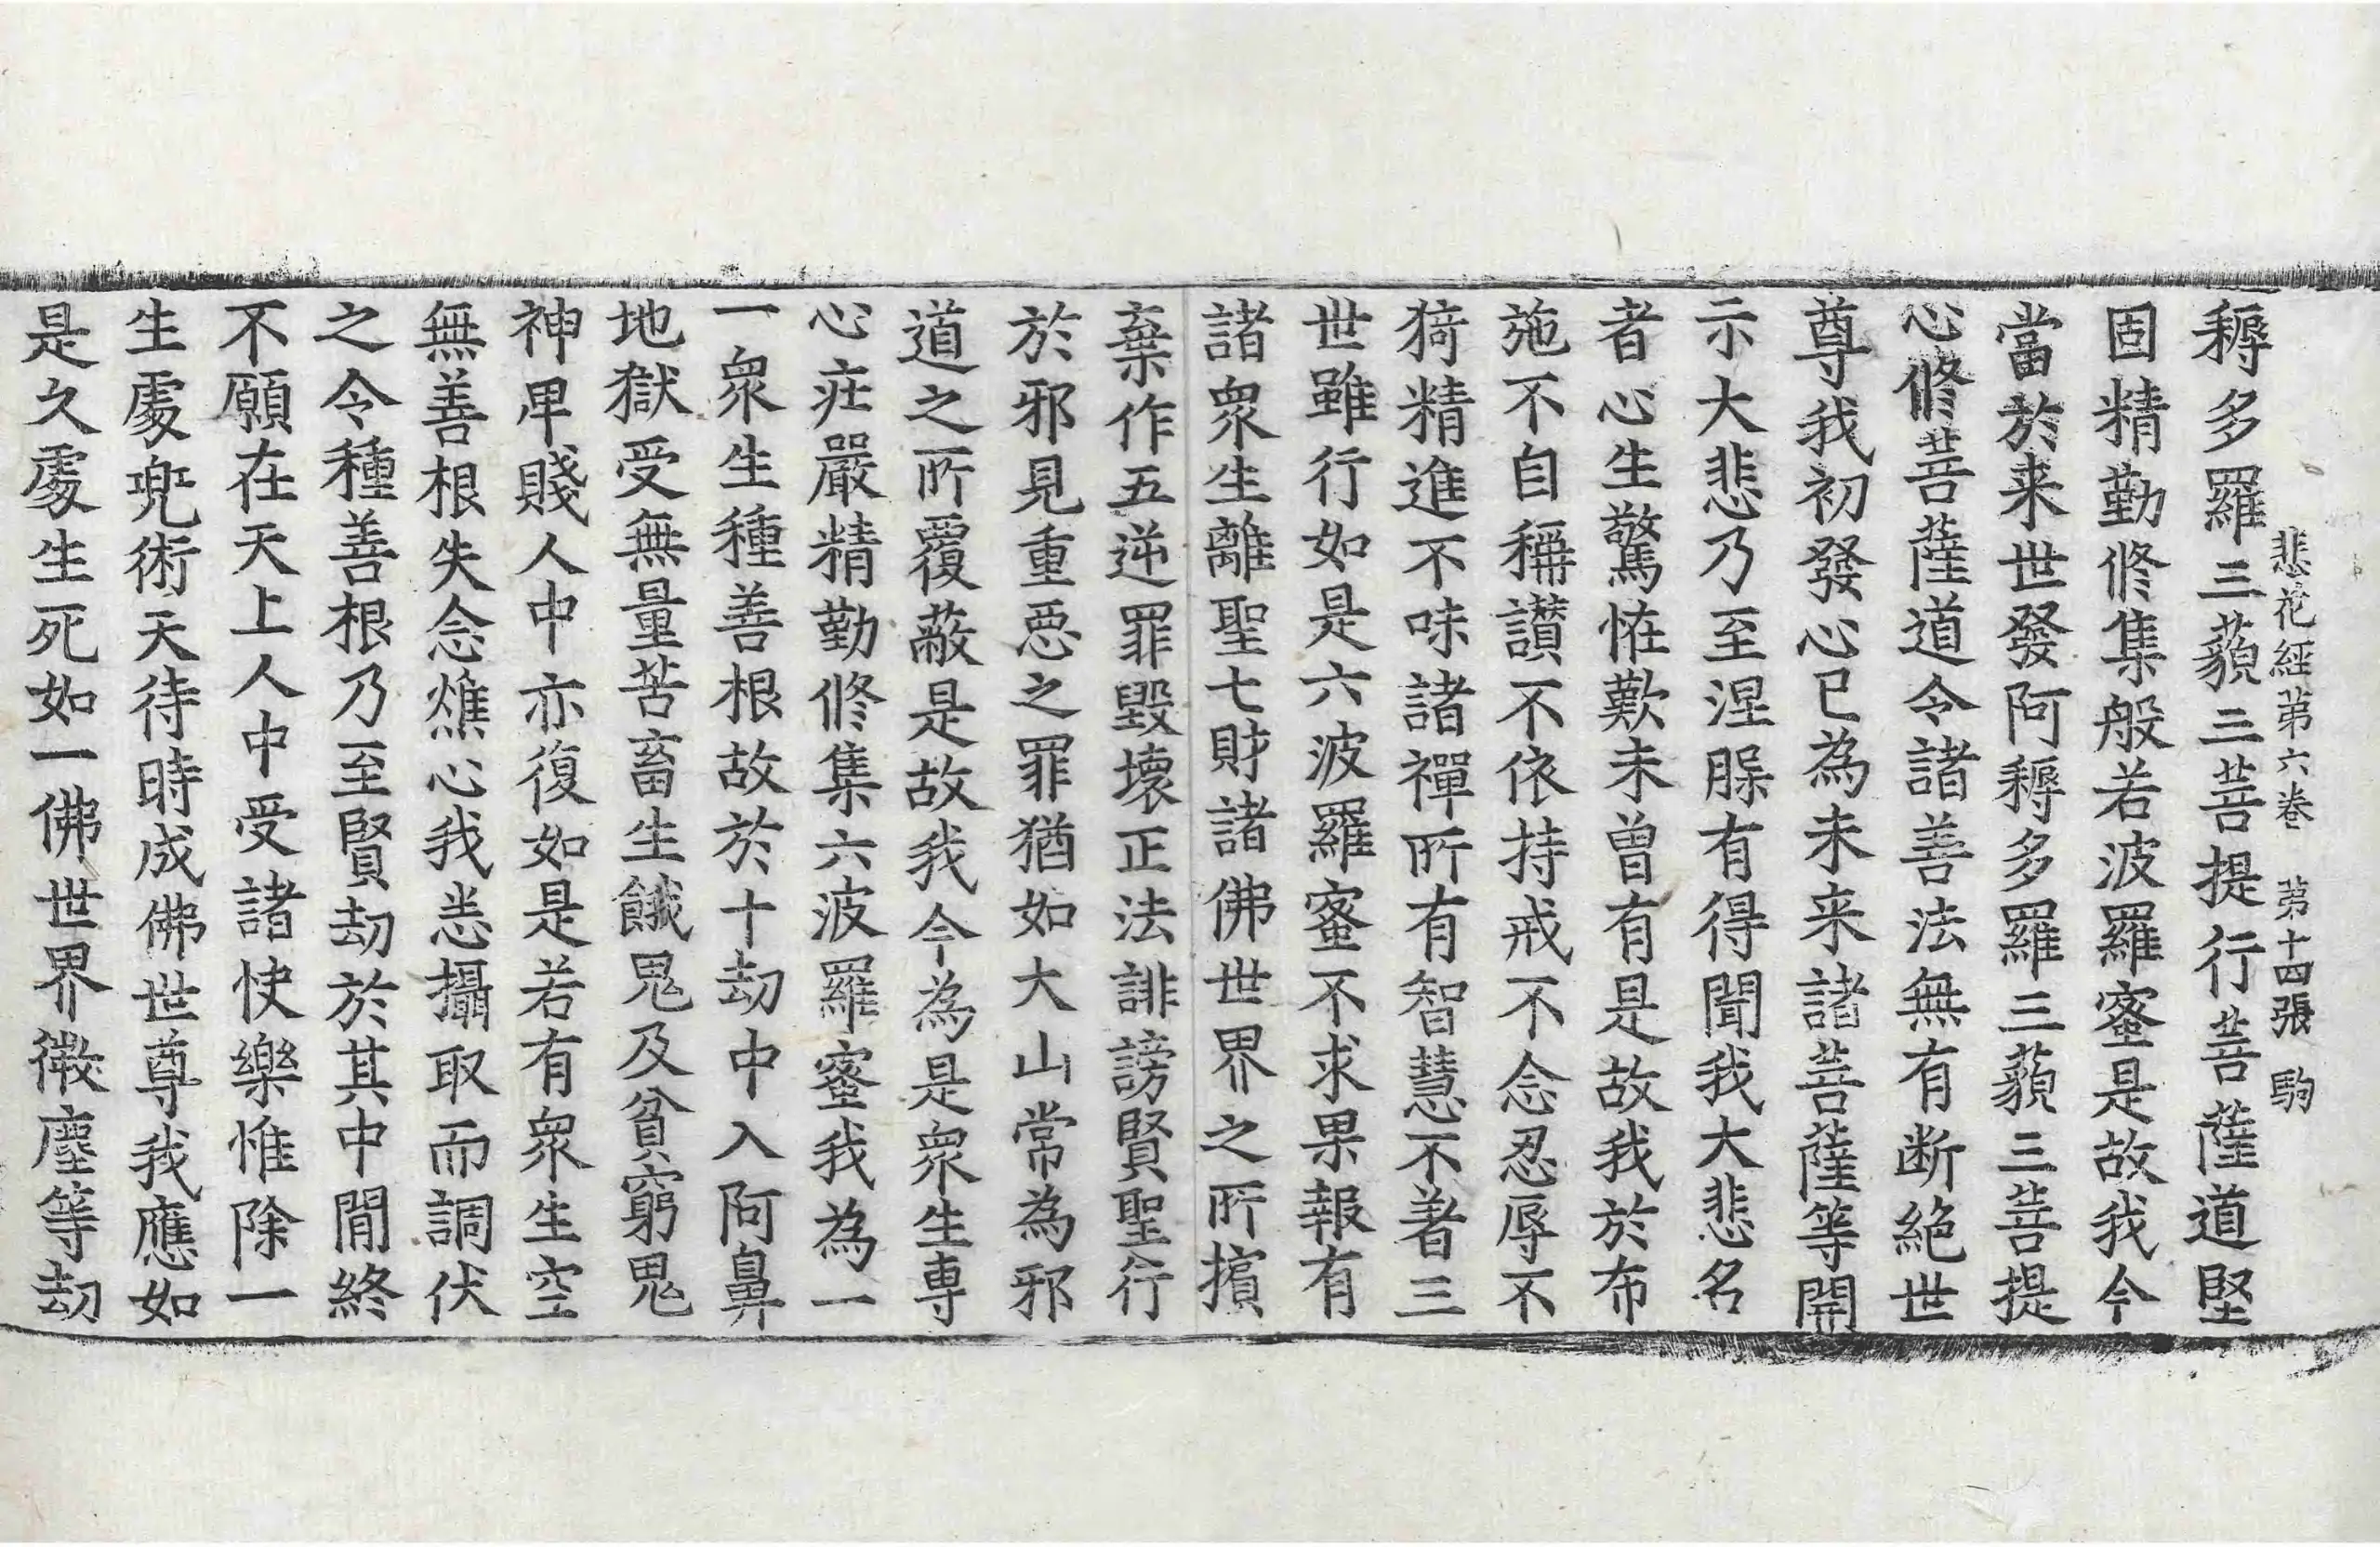 悲花經第六卷 第十四張 駒
耨多羅三藐三菩提行菩薩道堅
固精勤修集般若波羅蜜是故我今
當於来世發阿耨多羅三藐三菩提
心修菩薩道令諸善法無有断絶世
尊我初發心已為未来諸菩薩等開
示大悲乃至涅槃有得聞我大悲名
者心生驚恠歎未曽有是故我於布
施不自稱讃不依持戒不念忍辱不
猗精進不味諸禪所有智慧不著三
世雖行如是六波羅蜜不求果報有
諸衆生離聖七財諸佛世界之所擯
棄作五逆罪毀壞正法誹謗賢聖行
於邪見重惡之罪猶如大山常為邪
道之所覆蔽是故我今為是衆生専
心莊嚴精勤修集六波羅蜜我為一
一衆生種善根故於十劫中入阿鼻
地獄受無量苦畜生餓鬼及貧窮鬼
神卑賤人中亦復如是若有衆生空
無善根失念燋心我悉攝取而調伏
之令種善根乃至賢劫於其中閒終
不願在天上人中受諸快樂惟除一
生處兜術天待時成佛世尊我應如
是久處生死如一佛世界微塵等劫